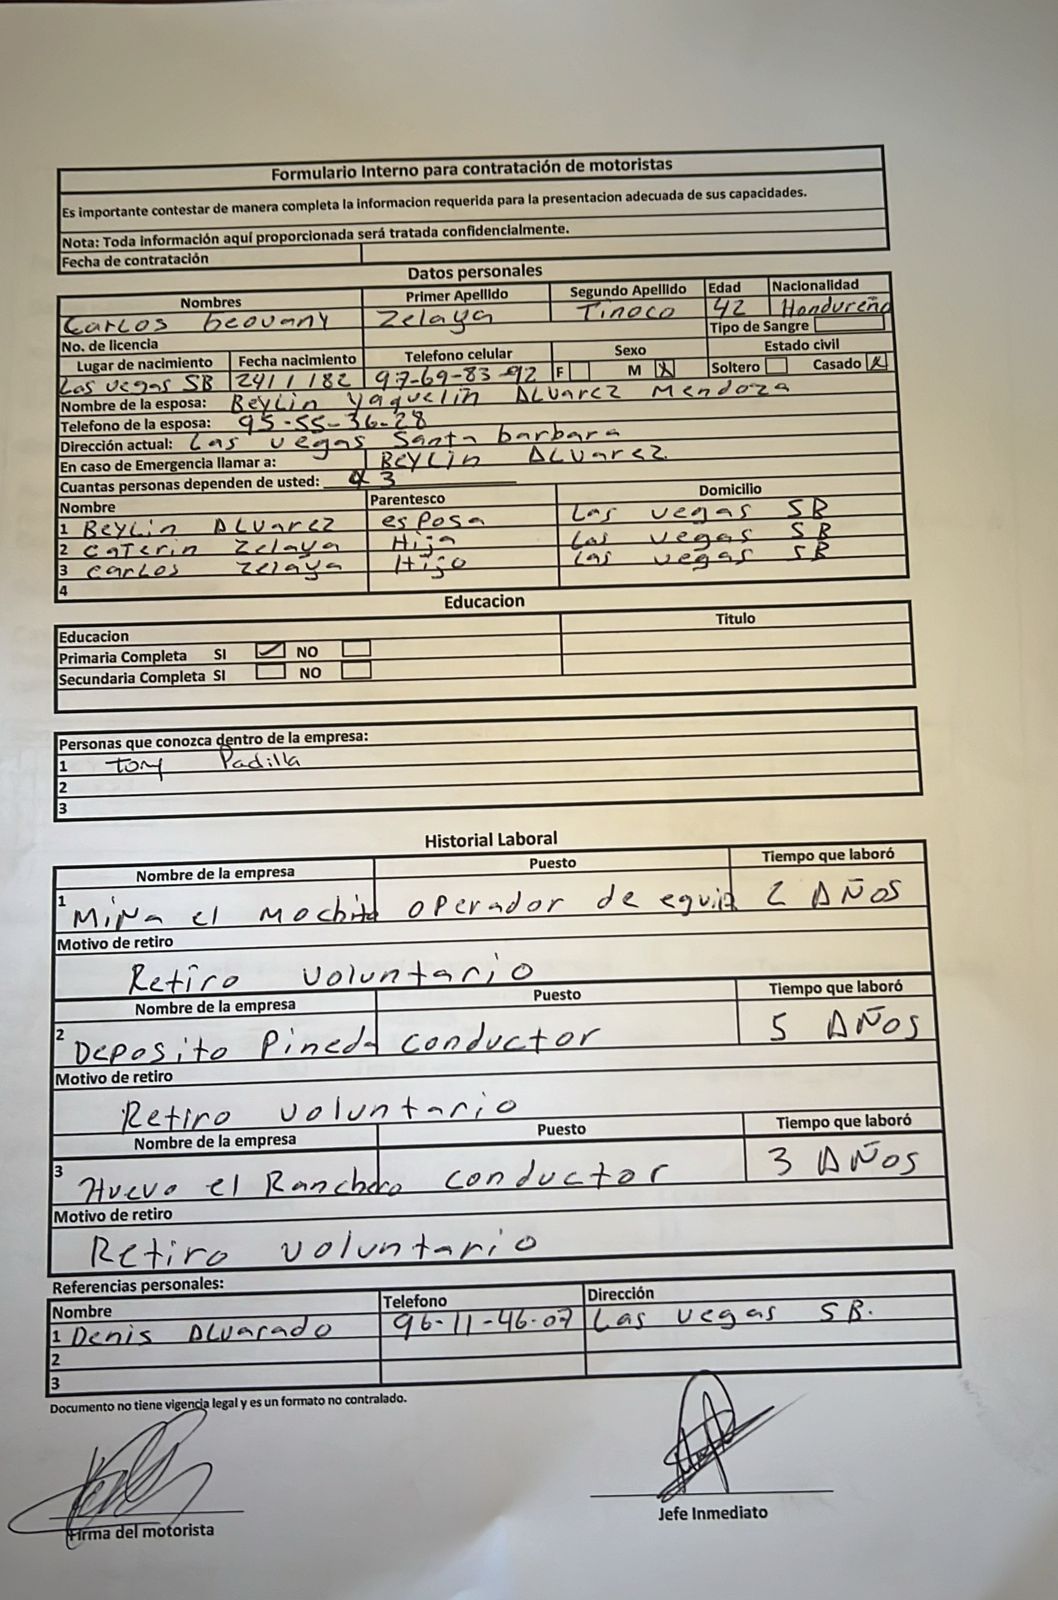 Formulario Interno para contratación de motoristas
Es importante contestar de manera completa la informacion requerida para la presentacion adecuada de sus capacidades.
Nota: Toda información aquí proporcionada será tratada confidencialmente.
Fecha de contratación
Datos personales
Nombres Primer Apellido Segundo Apellido Edad Nacionalidad
Carlos Geovany Zelaya Tinoco 42 Hondureño
No. de licencia Tipo de Sangre
Lugar de nacimiento Fecha nacimiento Telefono celular Sexo Estado civil
Las vegas SB 24/1/82 97-69-83-92 F M X Soltero Casado X
Nombre de la esposa: Beylin Yaquelin Alvarez Mendoza
Telefono de la esposa: 95-55-36-28
Dirección actual: Las vegas Santa barbara
En caso de Emergencia llamar a: Beylin Alvarez.
Cuantas personas dependen de usted: 3
Nombre Parentesco Domicilio
1 Beylin Alvarez esposa Las vegas SB
2 caterin Zelaya Hija Las vegas SB
3 carlos Zelaya Hijo Las vegas SB
4
Educacion
Educacion Titulo
Primaria Completa SI ✓ NO
Secundaria Completa SI NO
Personas que conozca dentro de la empresa:
1 Tony Padilla
2
3
Historial Laboral
Nombre de la empresa Puesto Tiempo que laboró
1 Mina el Mochito operador de equip 2 AÑOS
Motivo de retiro
Retiro voluntario
Nombre de la empresa Puesto Tiempo que laboró
2 Deposito Pineda conductor 5 AÑOS
Motivo de retiro
Retiro voluntario
Nombre de la empresa Puesto Tiempo que laboró
3 Huevo el Ranchero conductor 3 AÑOS
Motivo de retiro
Retiro voluntario
Referencias personales:
Nombre Telefono Dirección
1 Denis Alvarado 96-11-46-07 Las vegas SB.
2
3
Documento no tiene vigencia legal y es un formato no contralado.
Firma del motorista Jefe Inmediato